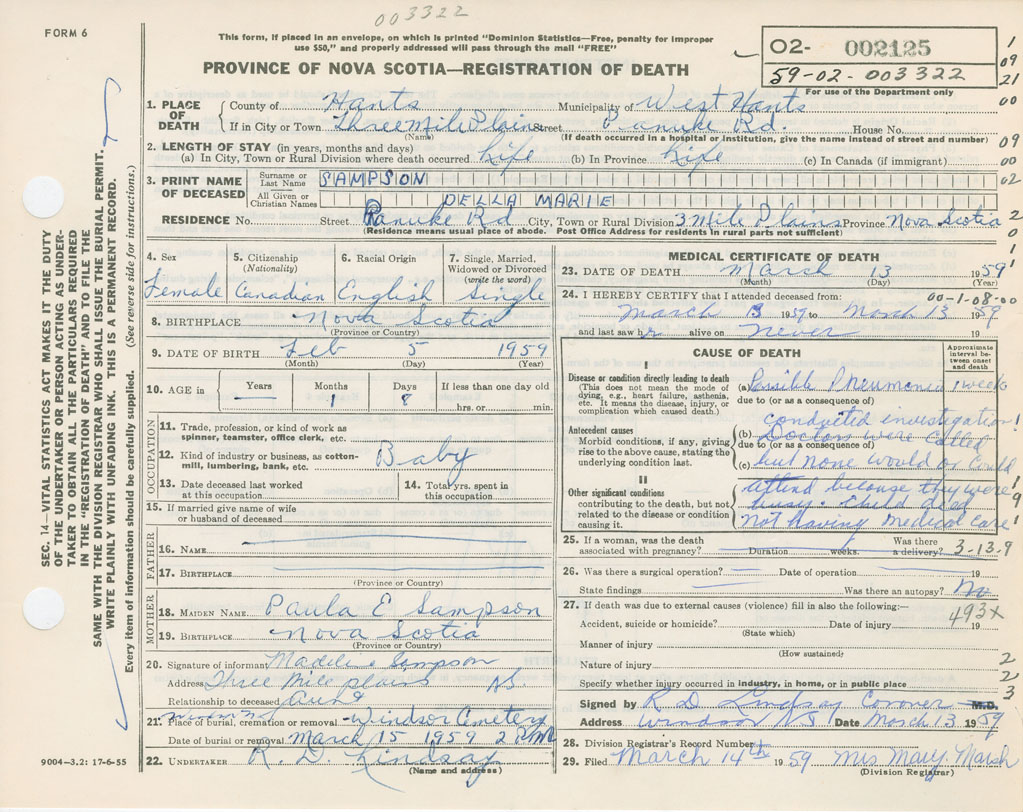 003322
FORM 6
This form, if placed in an envelope, on which is printed "Dominion Statistics—Free, penalty for improper
use $50," and properly addressed will pass through the mail "FREE"
PROVINCE OF NOVA SCOTIA—REGISTRATION OF DEATH
02- 002125
59-02-003322
For use of the Department only
1
09
21
00
09
00
02
2
0
1. PLACE OF DEATH
County of Hants Municipality of West Hants
If in City or Town Three Mile Plains Street Panuke Rd. House No.
(Name) (If death occurred in hospital or institution, give the name instead of street and number)
2. LENGTH OF STAY (in years, months and days)
(a) In City, Town or Rural Division where death occurred Life (b) In Province Life (c) In Canada (if immigrant)
3. PRINT NAME OF DECEASED
Surname or Last Name SAMPSON
All Given or Christian Names DELLA MARIE
RESIDENCE No. Street Panuke Rd City, Town or Rural Division 3 Mile Plains Province Nova Scotia
(Residence means usual place of abode. Post Office Address for residents in rural parts not sufficient)
4. Sex
Female
5. Citizenship (Nationality)
Canadian
6. Racial Origin
English
7. Single, Married, Widowed or Divorced (write the word)
Single
8. BIRTHPLACE Nova Scotia
(Province or Country)
9. DATE OF BIRTH Feb 5 1959
(Month) (Day) (Year)
10. AGE in
Years Months Days If less than one day old
— 1 8 hrs. or min.
OCCUPATION
11. Trade, profession, or kind of work as spinner, teamster, office clerk, etc.
12. Kind of industry or business, as cotton-mill, lumbering, bank, etc.
Baby
13. Date deceased last worked at this occupation
14. Total yrs. spent in this occupation
15. If married give name of wife or husband of deceased
FATHER
16. NAME
17. BIRTHPLACE
(Province or Country)
MOTHER
18. MAIDEN NAME Paula E Sampson
19. BIRTHPLACE Nova Scotia
(Province or Country)
20. Signature of informant Madeline Sampson
Address Three Mile plains NS.
Relationship to deceased Aunt
21. Place of burial, cremation or removal Windsor Cemetery
Date of burial or removal March 15 1959 2 PM
22. UNDERTAKER R. D. Lindsay
(Name and address)
9004-3.2: 17-6-55
MEDICAL CERTIFICATE OF DEATH
23. DATE OF DEATH March 13 1959
(Month) (Day) (Year)
24. I HEREBY CERTIFY that I attended deceased from: 00-1-08-00
March 13 1959 to March 13 1959
and last saw her alive on never 19
CAUSE OF DEATH
Approximate interval between onset and death
I
Disease or condition directly leading to death
(This does not mean the mode of dying, e.g., heart failure, asthenia, etc. It means the disease, injury, or complication which caused death.)
(a) Possible Pneumonia 1 week
due to (or as a consequence of)
Antecedent causes
Morbid conditions, if any, giving rise to the above cause, stating the underlying condition last.
conducted investigation
(b) Doctors were called
due to (or as a consequence of)
(c) but none would or could
II
Other significant conditions
contributing to the death, but not related to the disease or condition causing it.
attend because they were
busy. Child died
not having medical care
25. If a woman, was the death associated with pregnancy? Duration weeks. Was there a delivery? 3-13-9
26. Was there a surgical operation? Date of operation 19
State findings Was there an autopsy? No
27. If death was due to external causes (violence) fill in also the following:—
493x
Accident, suicide or homicide? Date of injury 19
(State which)
Manner of injury
(How sustained)
Nature of injury
Specify whether injury occurred in industry, in home, or in public place
2
2
3
Signed by R D Lindsay Coroner M.D.
Address Windsor NS Date March 13 1959
28. Division Registrar's Record Number
29. Filed March 14th 1959 Mrs Mary Marsh
(Division Registrar)
SEC. 14—VITAL STATISTICS ACT MAKES IT THE DUTY
OF THE UNDERTAKER OR PERSON ACTING AS UNDER-
TAKER TO OBTAIN ALL THE PARTICULARS REQUIRED
IN THE "REGISTRATION OF DEATH" AND TO FILE THE
SAME WITH THE DIVISION REGISTRAR WHO SHALL ISSUE THE BURIAL PERMIT.
WRITE PLAINLY WITH UNFADING INK. THIS IS A PERMANENT RECORD.
Every item of information should be carefully supplied. (See reverse side for instructions.)